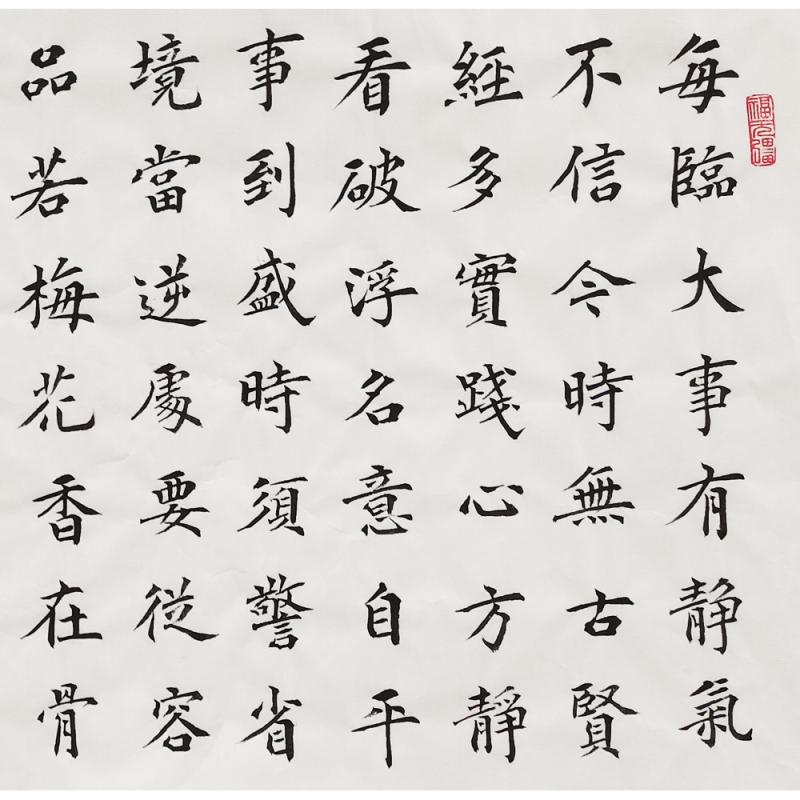 每臨大事有靜氣
不信今時無古賢
經多實踐心方靜
看破浮名意自平
事到盛時須警省
境當逆處要從容
品若梅花香在骨